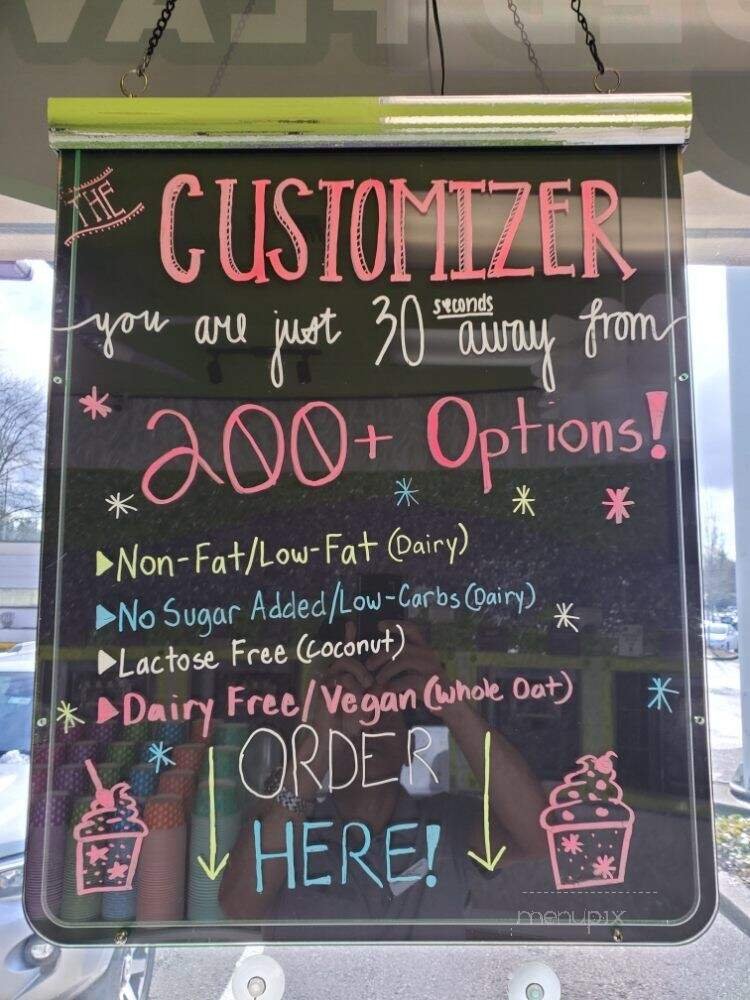 THE CUSTOMIZER
you are just 30 seconds away from
200+ Options!
▶Non-Fat/Low-Fat (Dairy)
▶No Sugar Added/Low-Carbs (Dairy)
▶Lactose Free (Coconut)
▶Dairy Free/Vegan (Whole Oat)
ORDER
HERE!
menupix